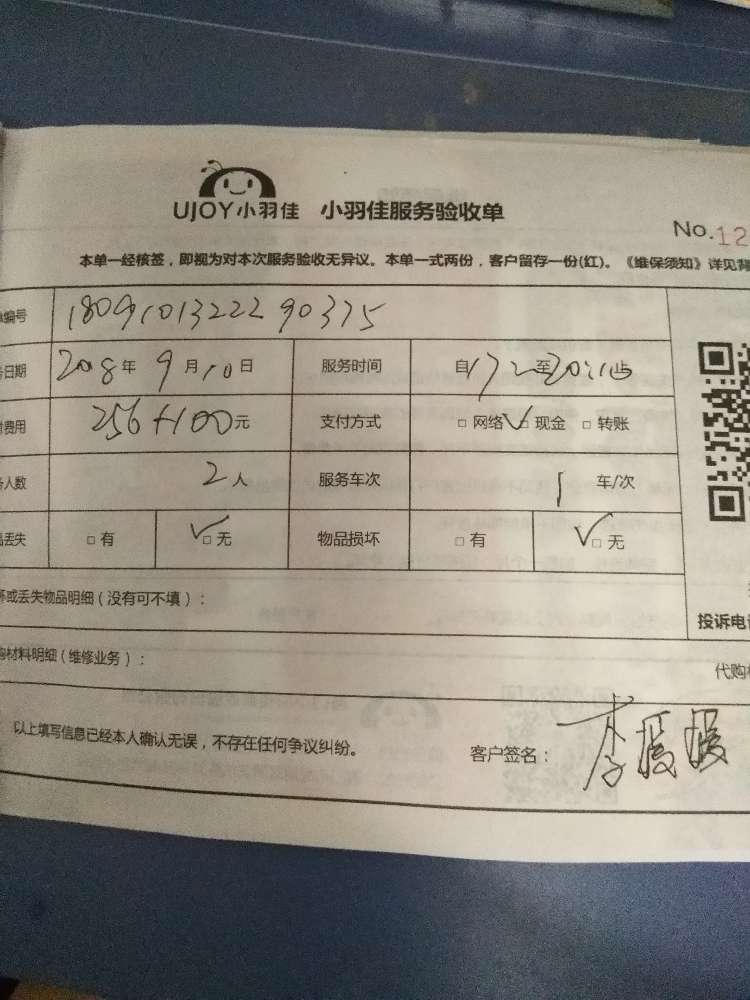 UJOY小羽佳 小羽佳服务验收单
No.12
本单一经核签，即视为对本次服务验收无异议。本单一式两份，客户留存一份(红)。《维保须知》详见背
编号 18091013222 90375
日期 2018年 9月10日 服务时间 自17 至20:10止
费用 256+100元 支付方式 □ 网络 □ 现金 □ 转账
人数 2人 服务车次 1 车/次
丢失 □ 有 □ 无 物品损坏 □ 有 □ 无
或丢失物品明细（没有可不填）：
投诉电
材料明细（维修业务）：
代购
以上填写信息已经本人确认无误，不存在任何争议纠纷。
客户签名： 李